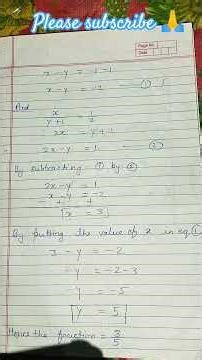 Please subscribe 🙏
Page No.
Date
x - y = -1 - 1
x - y = -2 ①
And
x/y+1 = 1/2
2x = y + 1
2x - y = 1 ②
By subtracting ① by ②
2x - y = 1
x - y = -2
- + +
x = 3
By putting the value of x in eq ①
3 - y = -2
- y = -2 - 3
- y = -5
y = 5
Hence the fraction = 3/5